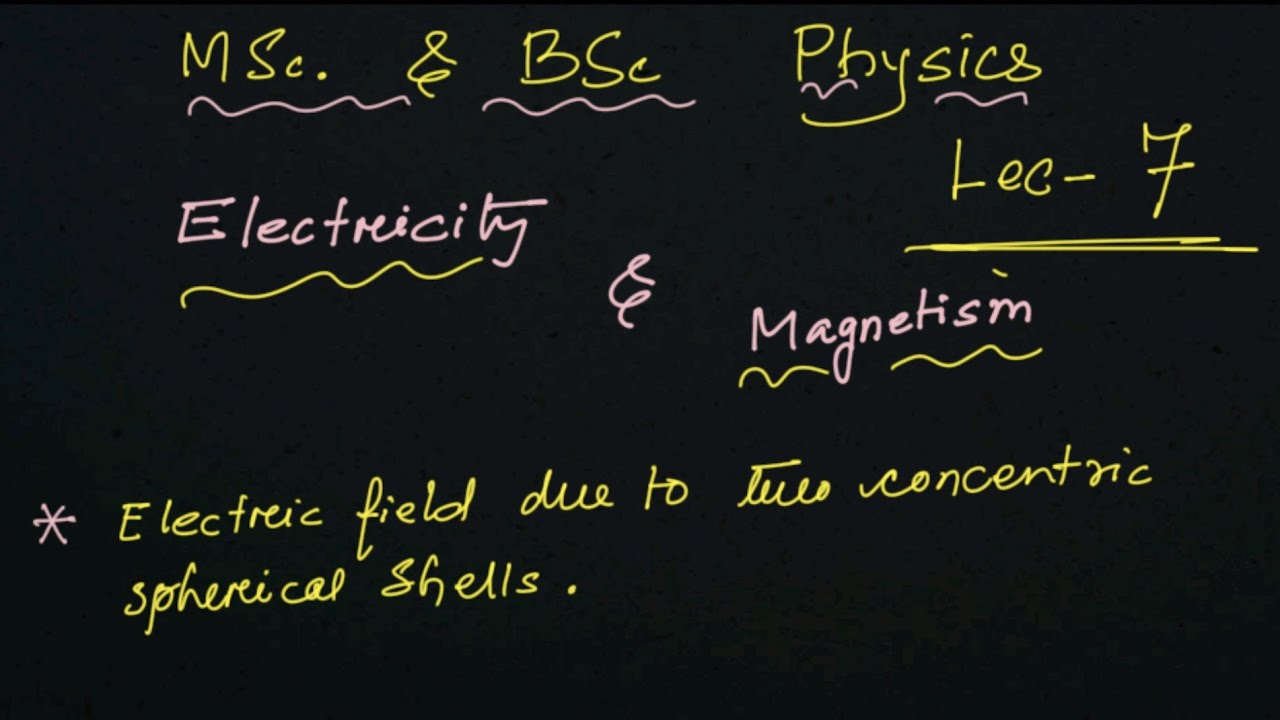 MSc. & BSc Physics
Lec- 7
Electricity
&
Magnetism
* Electreic field due to two concentric
sphereical shells.